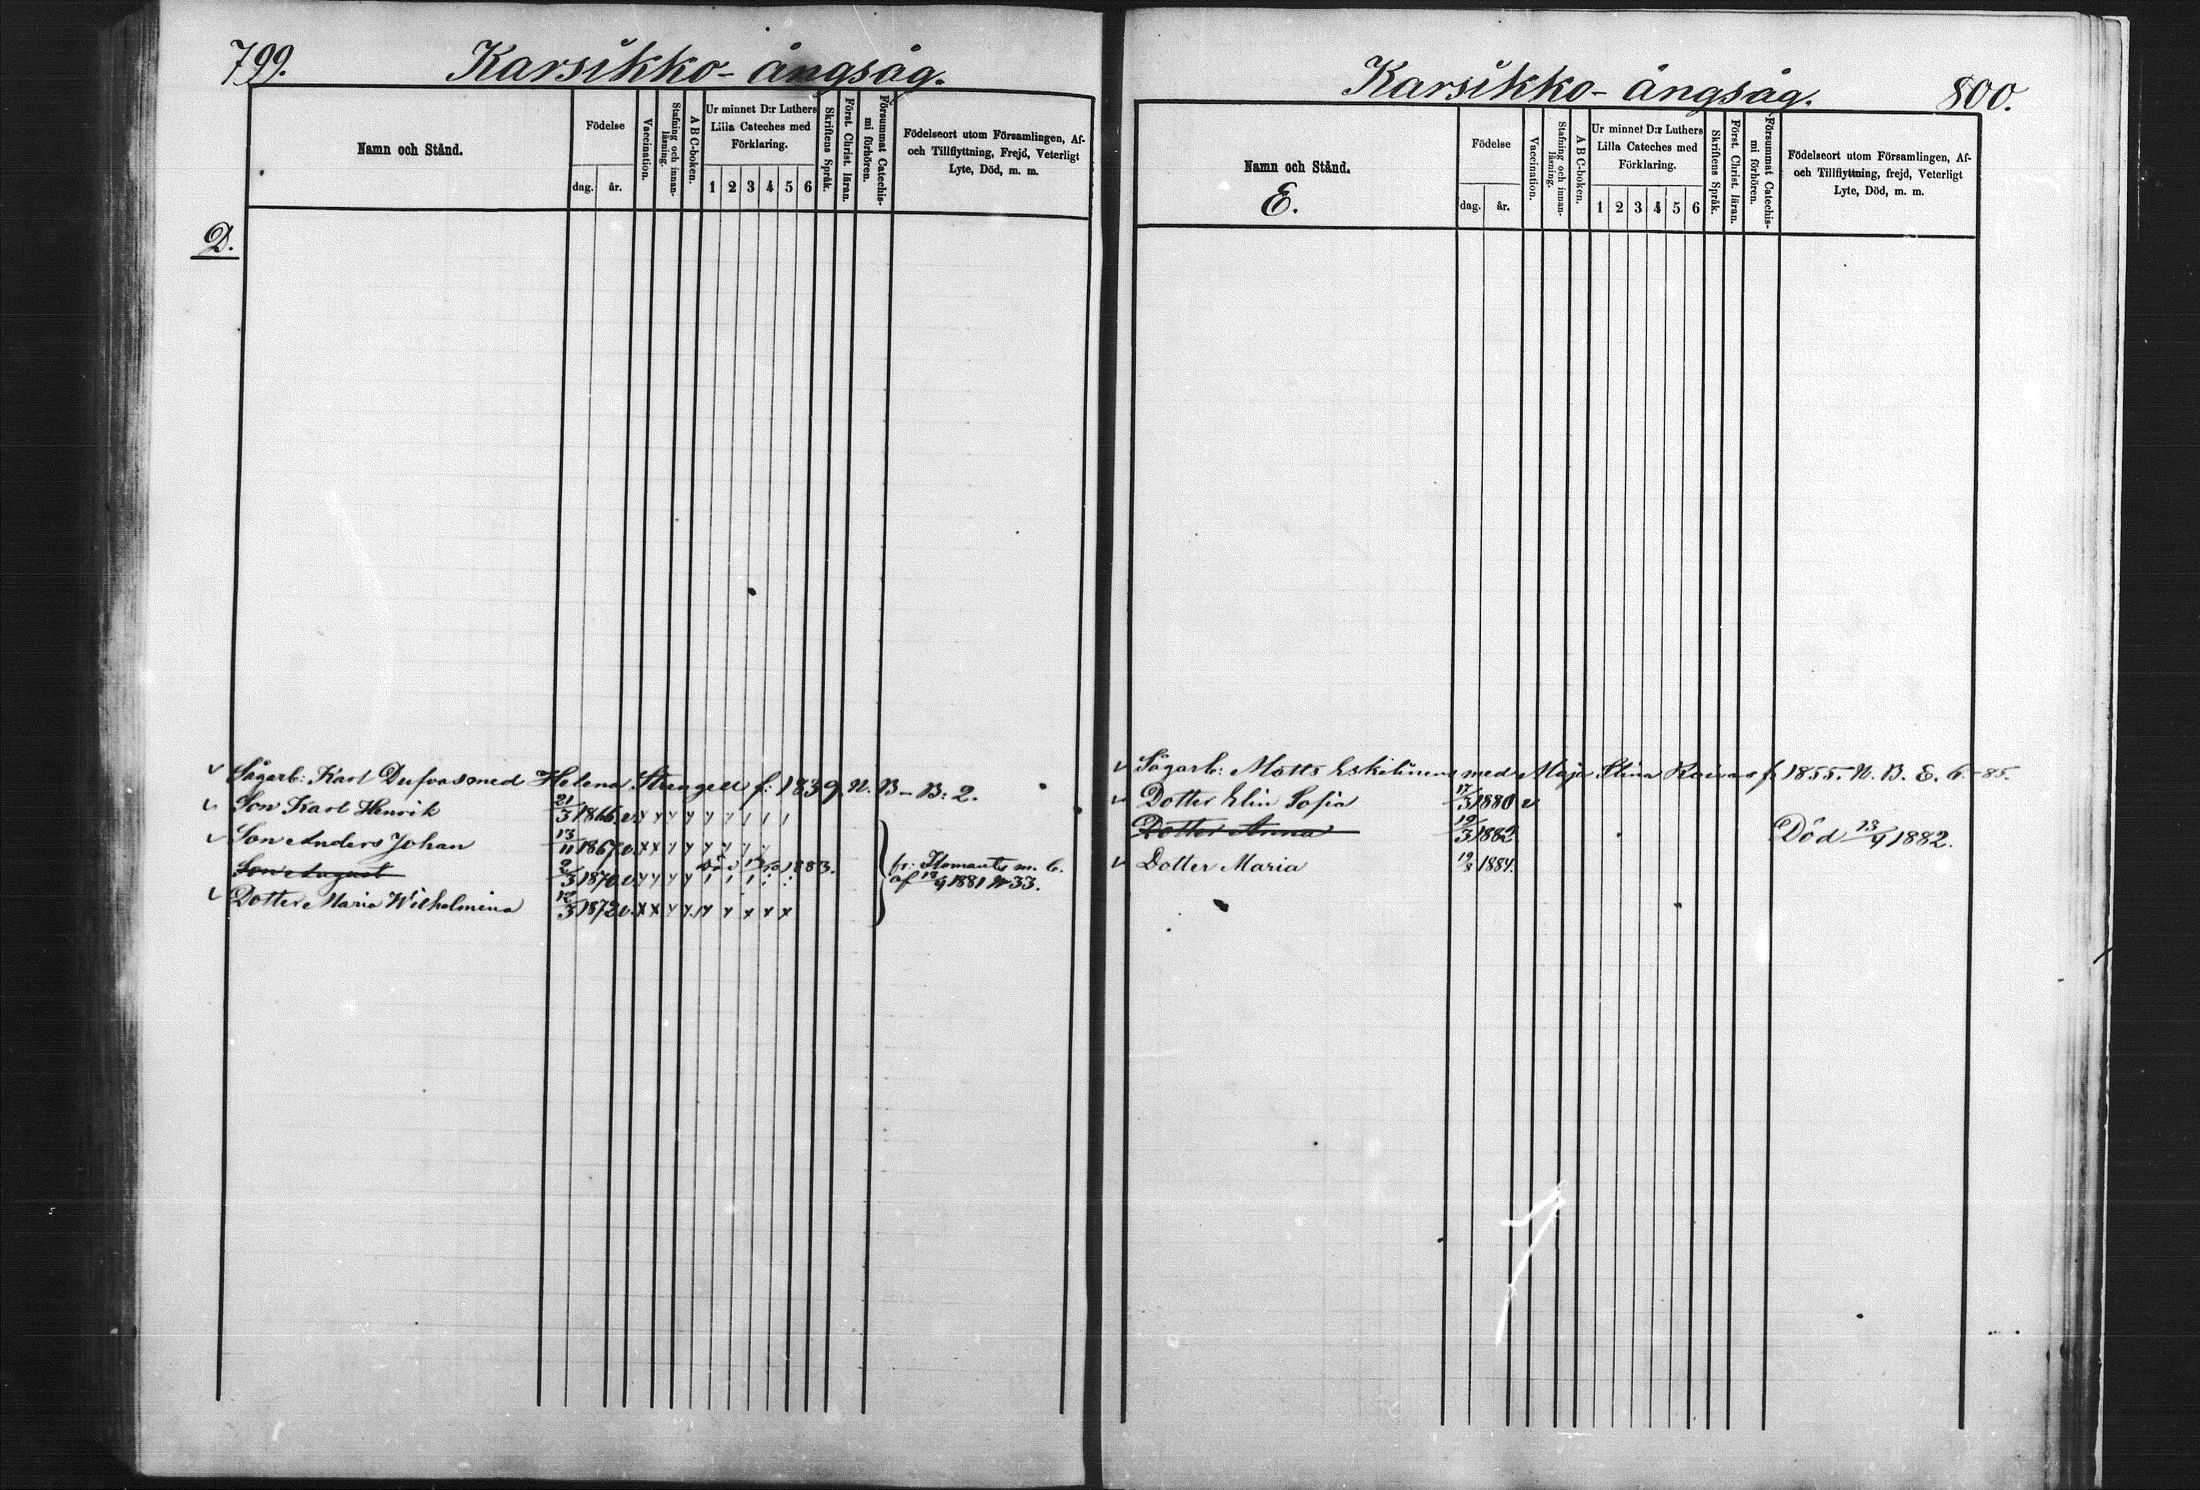 799. Karsikko-ångsåg.
Namn och Stånd.
Födelse
dag. år.
Vaccination.
Stafning och innan-läsning.
A B C-boken.
Ur minnet D:r Luthers
Lilla Cateches med
Förklaring.
1 2 3 4 5 6
Skriftens Språk.
Först. Christ. läran.
Försummat Catechis-
mi förhören.
Födelseort utom Församlingen, Af-
och Tillflyttning, Frejd, Veterligt
Lyte, Död, m. m.
D.
Sågarb: Karl Dufva med Helena Strengell f: 1839. N. B-B: 2.
Son Karl Henrik 21/3 1866 v.
Son Anders Johan 13/11 1867 v.
Son August 2/3 1870 v. Död 1883.
fr: Ilomants m. b.
af 1881 N 33.
Dotter Maria Wilhelmina 12/3 1872 v.
Karsikko-ångsåg. 800.
Namn och Stånd.
E.
Födelse
dag. år.
Vaccination.
Stafning och innan-läsning.
A B C-boken.
Ur minnet D:r Luthers
Lilla Cateches med
Förklaring.
1 2 3 4 5 6
Skriftens Språk.
Först. Christ. läran.
Försummat Catechis-
mi förhören.
Födelseort utom Församlingen, Af-
och Tillflyttning, frejd, Veterligt
Lyte, Död, m. m.
Sågarb: Matts Eskelinen med Maja Stina f. 1855. N. B. E. 6.-85.
Dotter Elin Sofia 17/3 1880 v
Dotter Anna 19/3 1882 Död 13/4 1882.
Dotter Maria 19/3 1884.